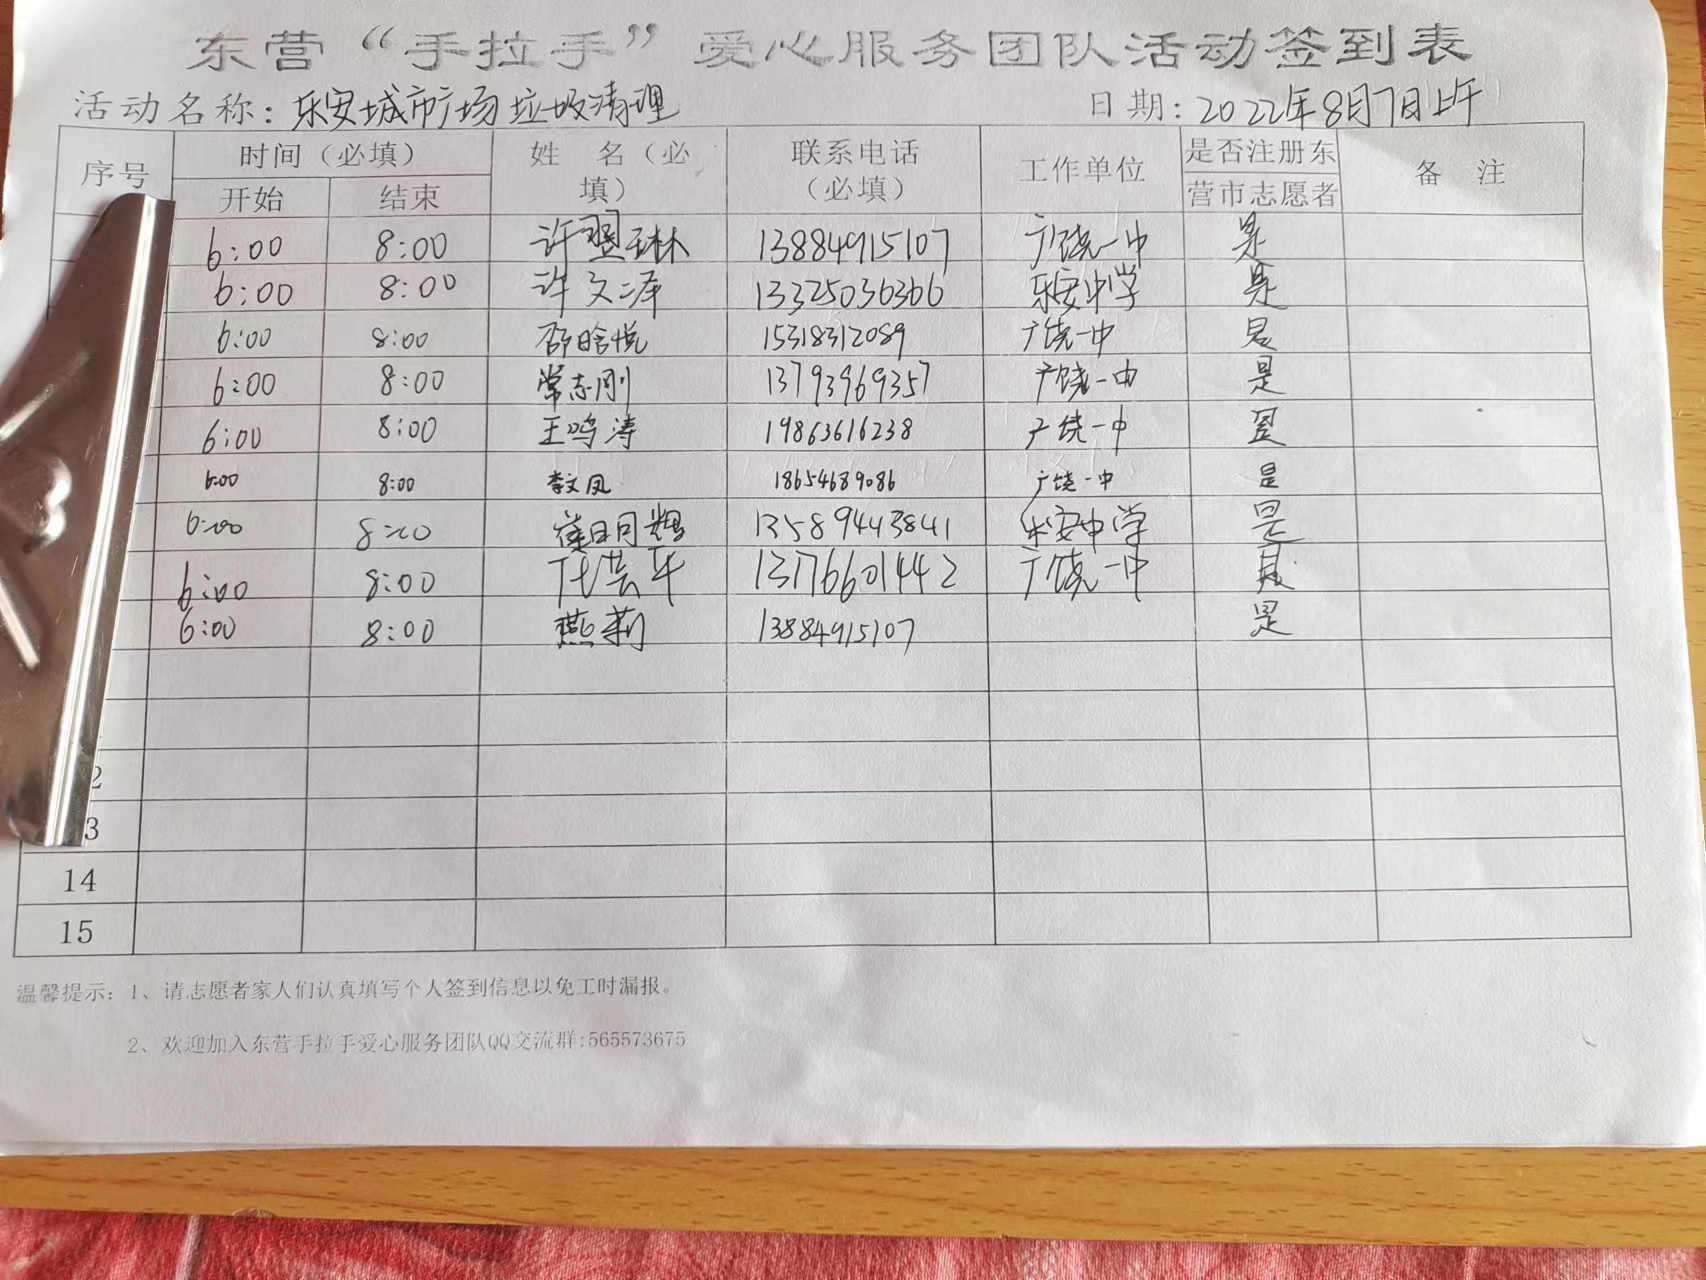 东营“手拉手”爱心服务团队活动签到表
活动名称：乐安城市广场垃圾清理 日期：2022年8月7日上午
序号 时间（必填） 姓 名（必填） 联系电话（必填） 工作单位 是否注册东营市志愿者 备 注
开始 结束
6:00 8:00 许翌琳 13884915107 广饶一中 是
6:00 8:00 许文泽 13325036366 乐安中学 是
6:00 8:00 邵晗悦 15318312089 广饶一中 是
6:00 8:00 常志刚 13793969357 广饶一中 是
6:00 8:00 王鸣涛 19863616238 广饶一中 是
6:00 8:00 李文凤 18654689086 广饶一中 是
6:00 8:00 13589443841 乐安中学 是
6:00 8:00 13176601442 广饶一中 是
6:00 8:00 燕莉 13884915107 是
2
3
14
15
温馨提示：1、请志愿者家人们认真填写个人签到信息以免工时漏报。
2、欢迎加入东营手拉手爱心服务团队QQ交流群:565573675